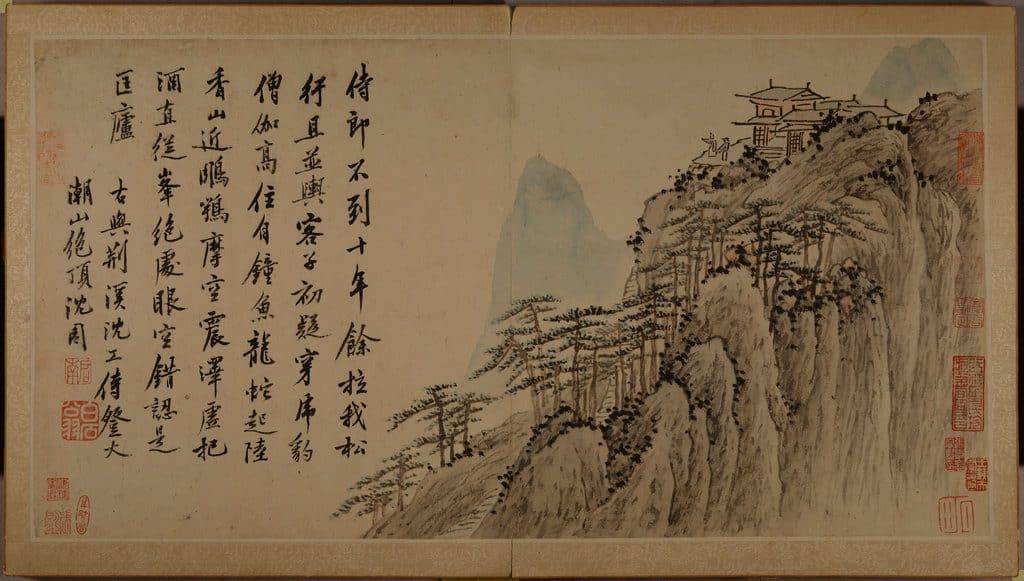 侍郎不到十年餘拉我松
行且並輿客子初疑穿虎豹
僧伽高住有鐘魚龍蛇起陸
香山近鵰鶚摩空震澤虛把
酒直從峯絶處眼空錯認是
匡廬 右與荊溪沈工侍登大
潮山絶頂沈周
啟南
白石翁